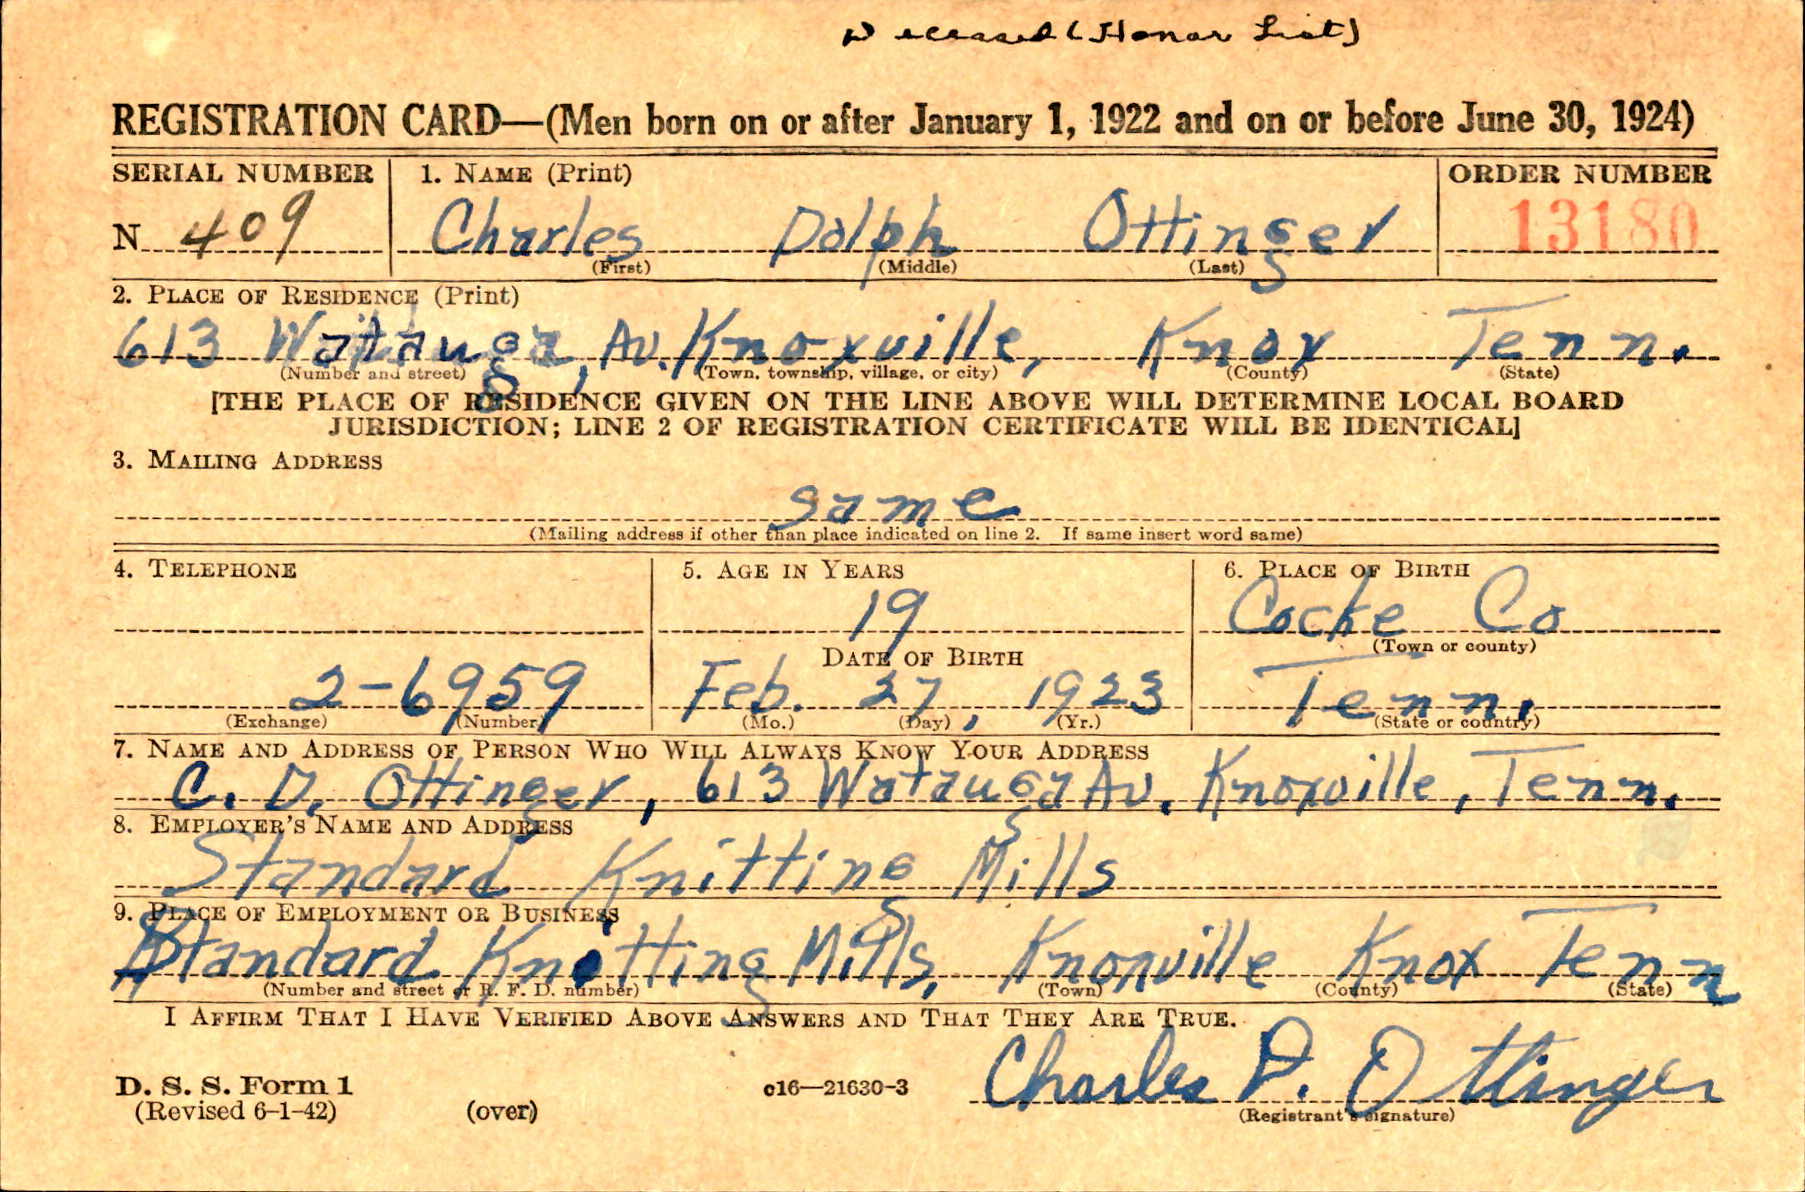 Deceased (Honor List)
REGISTRATION CARD—(Men born on or after January 1, 1922 and on or before June 30, 1924)
SERIAL NUMBER 1. NAME (Print) ORDER NUMBER
N 409 Charles Dolph Ottinger 13180
(First) (Middle) (Last)
2. PLACE OF RESIDENCE (Print)
613 Watauga, Av. Knoxville, Knox Tenn.
(Number and street) (Town, township, village, or city) (County) (State)
[THE PLACE OF RESIDENCE GIVEN ON THE LINE ABOVE WILL DETERMINE LOCAL BOARD
JURISDICTION; LINE 2 OF REGISTRATION CERTIFICATE WILL BE IDENTICAL]
3. MAILING ADDRESS
same
(Mailing address if other than place indicated on line 2. If same insert word same)
4. TELEPHONE 5. AGE IN YEARS 6. PLACE OF BIRTH
19 Cocke Co
DATE OF BIRTH (Town or county)
2-6959 Feb. 27, 1923 Tenn.
(Exchange) (Number) (Mo.) (Day) (Yr.) (State or country)
7. NAME AND ADDRESS OF PERSON WHO WILL ALWAYS KNOW YOUR ADDRESS
C. D. Ottinger, 613 Watauga Av. Knoxville, Tenn.
8. EMPLOYER'S NAME AND ADDRESS
Standard Knitting Mills
9. PLACE OF EMPLOYMENT OR BUSINESS
Standard Knitting Mills, Knoxville Knox Tenn
(Number and street or R. F. D. number) (Town) (County) (State)
I AFFIRM THAT I HAVE VERIFIED ABOVE ANSWERS AND THAT THEY ARE TRUE.
D. S. S. Form 1 c16—21630-3 Charles D. Ottinger
(Revised 6-1-42) (over) (Registrant's signature)